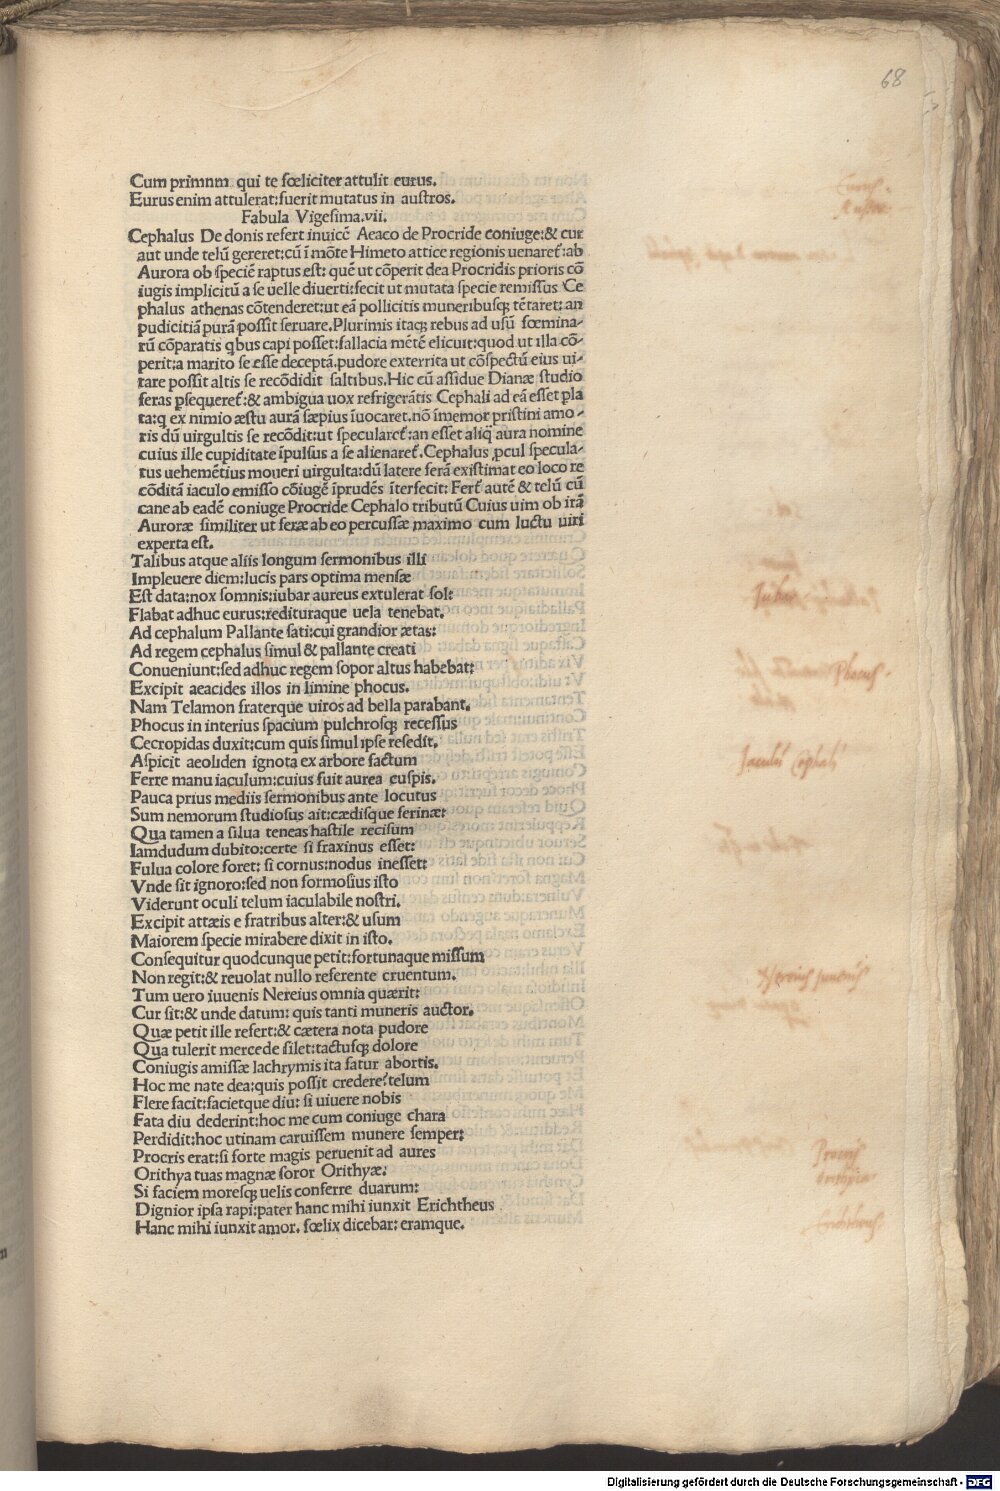 68
Cum primnm qui te fœliciter attulit eurus.
Eurus enim attulerat:fuerit mutatus in austros.
Fabula Vigesima.vii.
Cephalus De donis refert inuicē Aeaco de Procride coniuge:& cur
aut unde telū gereret:cū ī mōte Himeto attice regionis uenaret᷑:ab
Aurora ob speciē raptus est: quē ut cōperit dea Procridis prioris cō
iugis implicitū a se uelle diuerti:fecit ut mutata specie remissus Ce
phalus athenas cōtenderet:ut eā pollicitis muneribusq; tētaret: an
pudicitiā purā possit seruare.Plurimis itaq; rebus ad usū fœmina-
rū cōparatis qbus capi posset:fallacia mētē elicuit:quod ut illa cō-
perit:a marito se esse deceptā.pudore exterrita ut cōspectū eius ui-
tare possit altis se recōdidit saltibus.Hic cū assidue Dianæ studio
feras ꝑsequeret᷑:& ambigua uox refrigerātis Cephali ad eā esset pla
ta:q ex nimio æstu aurā sæpius īuocaret.nō īmemor pristini amo-
ris dū uirgultis se recōdit:ut specularet᷑:an esset aliq̄ aura nomine
cuius ille cupiditate īpulsus a se alienaret᷑.Cephalus ꝓcul specula-
tus uehemētius moueri uirgulta:dū latere ferā existimat eo loco re
cōditā iaculo emisso cōiugē īprudēs īterfecit: Fert᷑ autē & telū cū
cane ab eadē coniuge Procride Cephalo tributū Cuius uim ob irā
Auroræ similiter ut feræ ab eo percussæ maximo cum luctu uiri
experta est.
Talibus atque aliis longum sermonibus illi
Impleuere diem:lucis pars optima mensæ
Est data:nox somnis:iubar aureus extulerat sol:
Flabat adhuc eurus:redituraque uela tenebat.
Ad cephalum Pallante sati:cui grandior ætas:
Ad regem cephalus simul & pallante creati
Conueniunt:sed adhuc regem sopor altus habebat:
Excipit aeacides illos in limine phocus.
Nam Telamon fraterque uiros ad bella parabant.
Phocus in interius spacium pulchrosq; recessus
Cecropidas duxit:cum quis simul ipse resedit.
Aspicit aeoliden ignota ex arbore factum
Ferre manu iaculum:cuius fuit aurea cuspis.
Pauca prius mediis sermonibus ante locutus
Sum nemorum studiosus ait:cædisque ferinæ:
Qua tamen a silua teneas hastile recisum
Iamdudum dubito:certe si fraxinus esset:
Fulua colore foret: si cornus:nodus inesset:
Vnde sit ignoro:sed non formosius isto
Viderunt oculi telum iaculabile nostri.
Excipit attæis e fratribus alter:& usum
Maiorem specie mirabere dixit in isto.
Consequitur quodcunque petit:fortunaque missum
Non regit:& reuolat nullo referente cruentum.
Tum uero iuuenis Nereius omnia quærit:
Cur sit:& unde datum: quis tanti muneris auctor.
Quæ petit ille refert:& cætera nota pudore
Qua tulerit mercede silet:tactusq; dolore
Coniugis amissæ lachrymis ita fatur abortis.
Hoc me nate dea:quis possit credere?telum
Flere facit:facietque diu: si uiuere nobis
Fata diu dederint:hoc me cum coniuge chara
Perdidit:hoc utinam caruissem munere semper:
Procris erat:si forte magis peruenit ad aures
Orithya tuas magnæ soror Orithyæ:
Si faciem moresq; uelis conferre duarum:
Dignior ipsa rapi:pater hanc mihi iunxit Erichtheus
Hanc mihi iunxit amor. fœlix dicebar: eramque.
Iubar
Phocus
Iaculū Cephali
Nereius iuuenis
Procris
Orithyia
Erichtheus
Digitalisierung gefördert durch die Deutsche Forschungsgemeinschaft - DFG